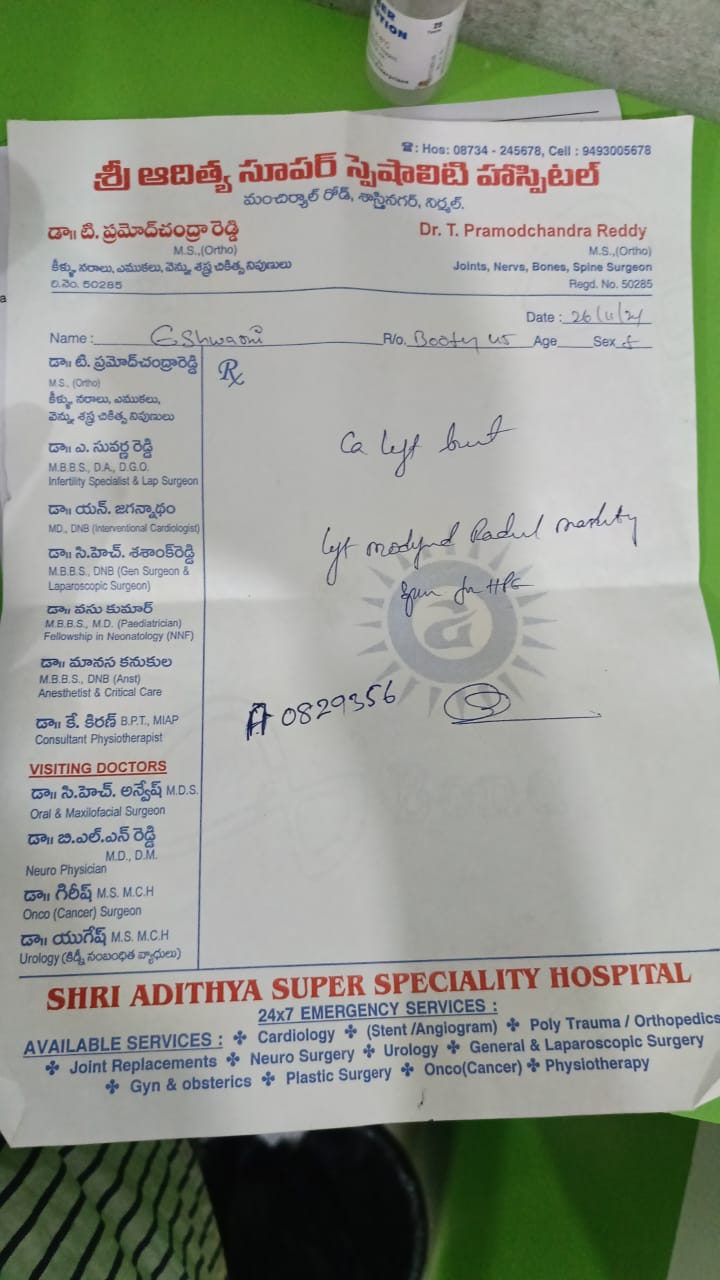 ☎: Hos: 08734 - 245678, Cell : 9493005678
శ్రీ ఆదిత్య సూపర్ స్పెషాలిటి హాస్పిటల్
మంచిర్యాల్ రోడ్, శాస్త్రినగర్, నిర్మల్.
డా॥ టి. ప్రమోద్‌చంద్రా రెడ్డి
M.S.,(Ortho)
కీళ్ళు నరాలు, ఎముకలు, వెన్ను శస్త్ర చికిత్స నిపుణులు
రి.నెం. 50285
Dr. T. Pramodchandra Reddy
M.S.,(Ortho)
Joints, Nervs, Bones, Spine Surgeon
Regd. No. 50285
Date : 26/11/24
Name : Eshwarni R/o. Age Sex f
Rx
Ca left
left Radical
for HPE
A 0829356
డా॥ టి. ప్రమోద్‌చంద్రారెడ్డి
M.S., (Ortho)
కీళ్ళు, నరాలు, ఎముకలు,
వెన్ను శస్త్ర చికిత్స నిపుణులు
డా॥ ఎ. సువర్ణ రెడ్డి
M.B.B.S., D.A., D.G.O.
Infertility Specialist & Lap Surgeon
డా॥ యన్. జగన్నాథం
MD., DNB (Interventional Cardiologist)
డా॥ సి.హెచ్. శశాంక్‌రెడ్డి
M.B.B.S., DNB (Gen Surgeon &
Laparoscopic Surgeon)
డా॥ వసు కుమార్
M.B.B.S., M.D. (Paediatrician)
Fellowship in Neonatology (NNF)
డా॥ మానస కనుకుల
M.B.B.S., DNB (Anst)
Anesthetist & Critical Care
డా॥ కే. కిరణ్ B.P.T., MIAP
Consultant Physiotherapist
VISITING DOCTORS
డా॥ సి.హెచ్. అన్వేష్ M.D.S.
Oral & Maxilofacial Surgeon
డా॥ బి.ఎల్.ఎన్ రెడ్డి
M.D., D.M.
Neuro Physician
డా॥ గిరీష్ M.S. M.C.H
Onco (Cancer) Surgeon
డా॥ యుగేష్ M.S. M.C.H
Urology (కిడ్నీ సంబంధిత వ్యాధులు)
SHRI ADITHYA SUPER SPECIALITY HOSPITAL
24x7 EMERGENCY SERVICES :
AVAILABLE SERVICES : ✤ Cardiology ✤ (Stent /Angiogram) ✤ Poly Trauma / Orthopedics
✤ Joint Replacements ✤ Neuro Surgery ✤ Urology ✤ General & Laparoscopic Surgery
✤ Gyn & obsterics ✤ Plastic Surgery ✤ Onco(Cancer) ✤ Physiotherapy